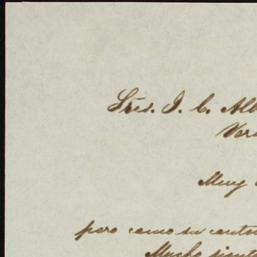 Sres. J. C. Alb
Ver
Muy
pero como su conten
Mucho sient